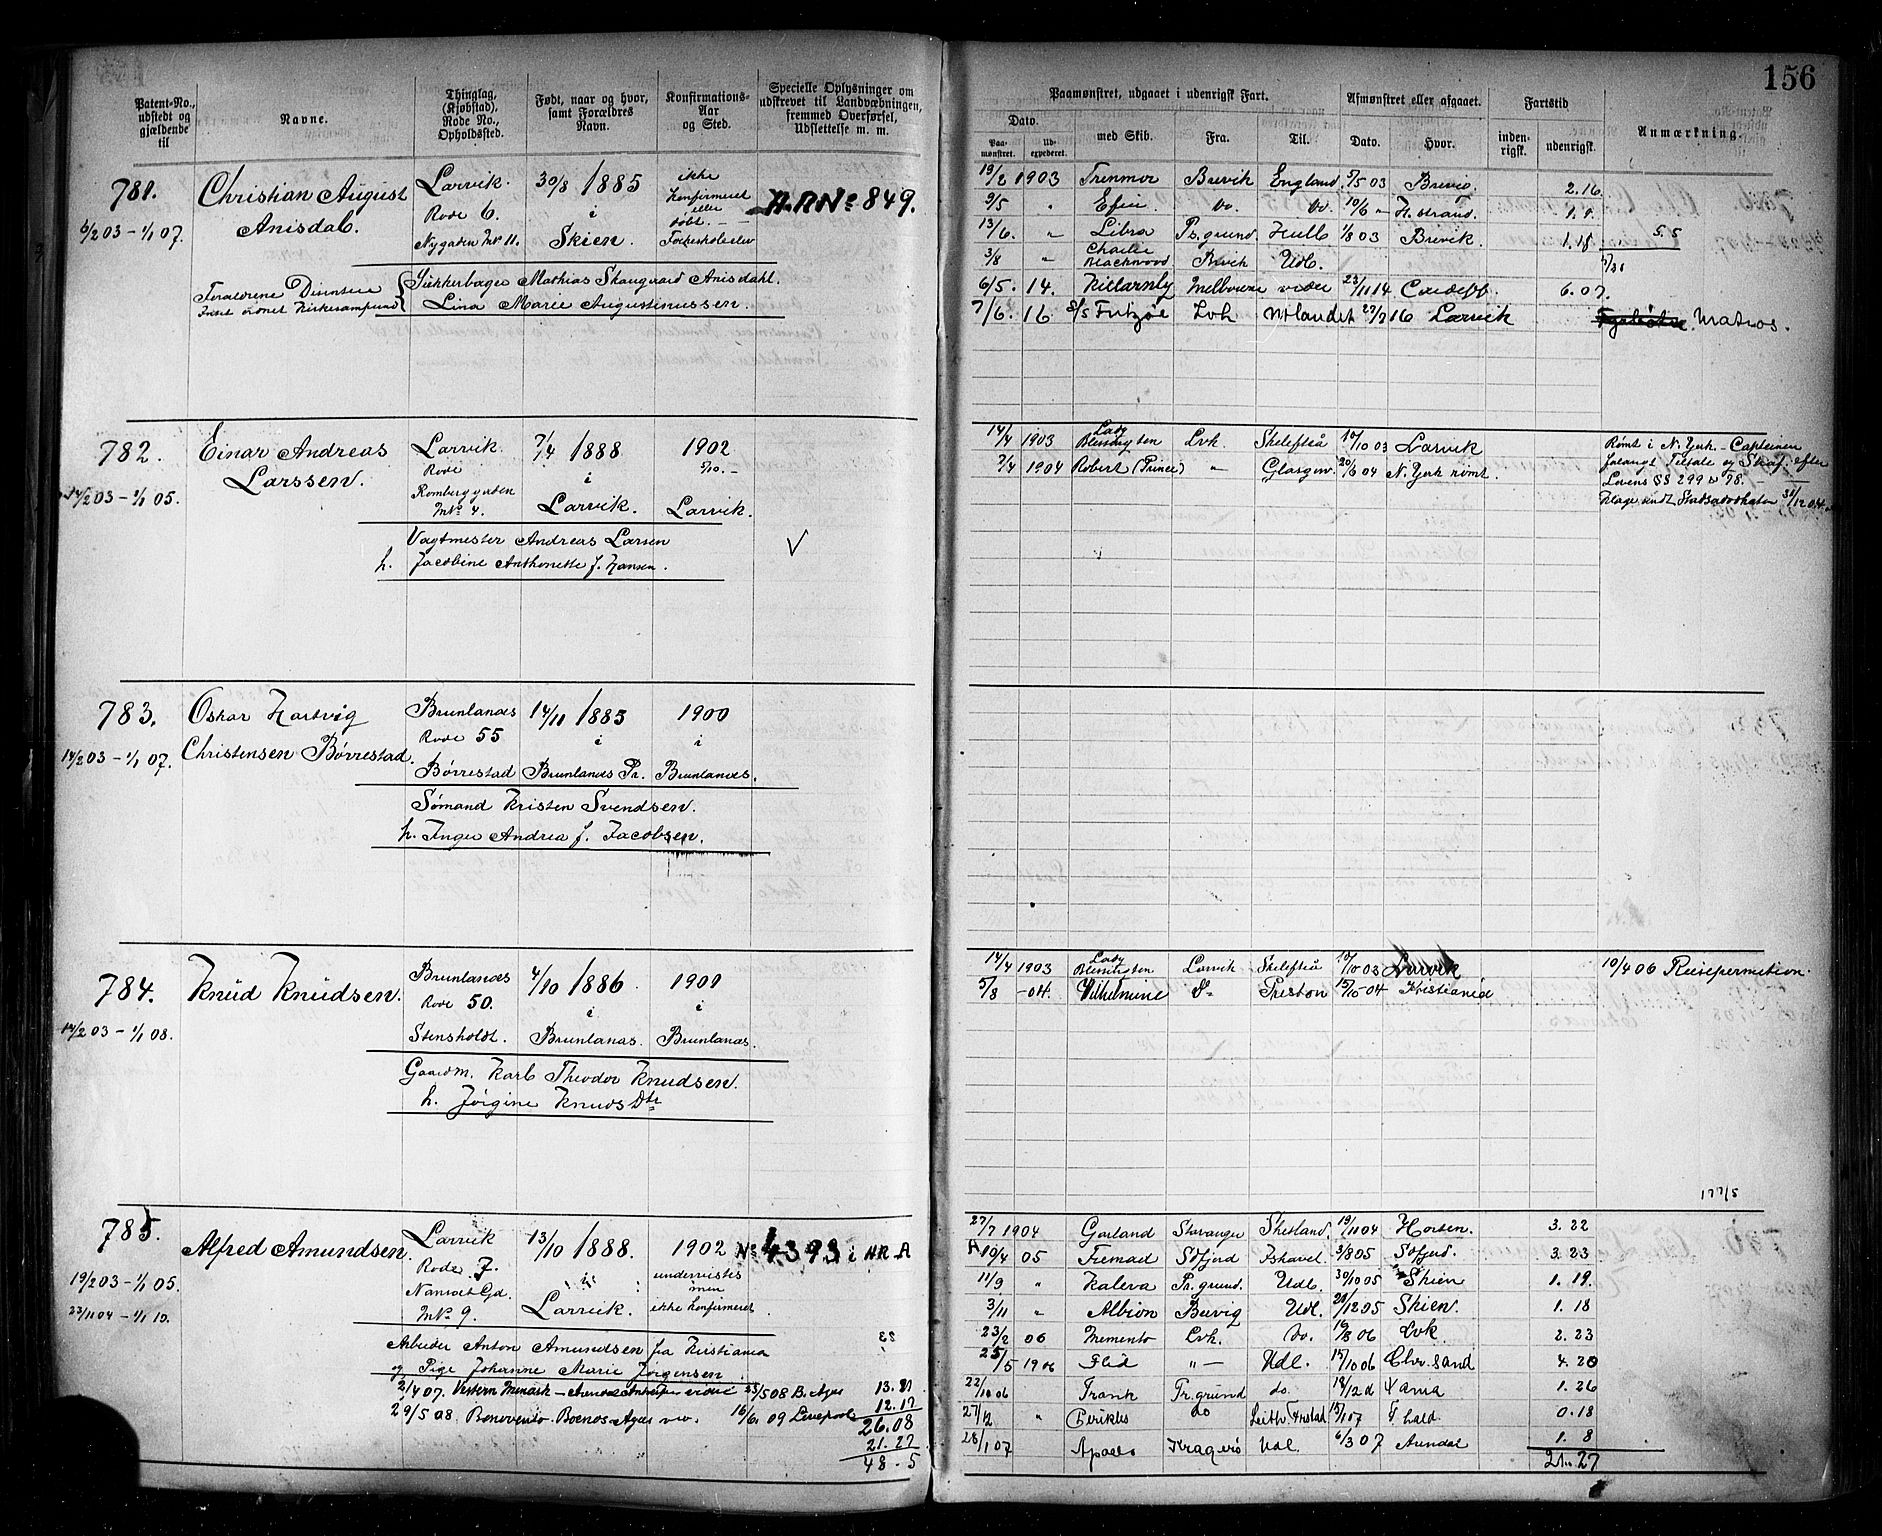 156
Patent-No., udstedt og gjældende til
Navne.
Thinglag, (Kjøbstad), Rode No., Opholdssted.
Født, naar og hvor, samt Forældres Navn.
Konfirmations-Aar og Sted.
Specielle Oplysninger om udskrevet til Landværdningen, fremmed Overførsel, Udslettelse m. m.
Paamønstret, udgaaet i udenrigsk Fart.
Dato.
Paamønstret.
Udexpederet.
med Skib.
Fra.
Til.
Afmønstret eller afgaaet.
Dato.
Hvor.
Fartstid
indenrigsk.
udenrigsk.
Anmærkning.
781. Christian August Larvik. 30/8 1885 ikke
Konfirmeret
eller
døbt.
6/2 03 - 1/1 07. Anisdal. Rode 6. i A.R.No 849.
Nygaden No 11. Skien.
Mathias Skaugaard Anisdahl.
Lina Marie Augustinussen.
19/2 1903 Trenmor Brevik England 7/5 03 2.16
9/5 " do. do. 10/6 " H.strand. 1.1
13/6. " Libra Ps.grund. Hull 1/8 03 Brevik. 1.18 5.5
3/8 " Charlie Blackwood Udl.
6/5. 14. Killarney Melbourne videre 23/11 14 Cardiff. 6.07.
7/6. 16 S/S Fritzøe Lvk Utlandet 16 Larvik Matros.
782. Einar Andreas Larvik. 7/4 1888 1902
Larssen. Rode i 5/10. -
14/2 03 - 1/1 05. Romberggaden
No 4. Larvik. Larvik.
Vagtmester Andreas Larsen
h. Jacobine Anthonette f. Hansen.
14/4 1903 Lady Blessington Lvk. Skelefteå 10/10 03 Larvik
7/4 1904 Robert (Prince) " Glasgow. 20/6 04 N. York rømt.
Rømt i N. York - Capteinen
forlangt Tiltale og Straf efter
Lovens §§ 299
Statsadvokaten 31/12 04.
783. Oskar Hartvig Brunlanæs 14/11 1885 1900
Rode 55 i i
14/2 03 - 1/1 07. Christensen Børrestad.
Børrestad Brunlanæs Pr. Brunlanæs.
Sømand Kristen Svendsen.
h. Inger Andrea f. Jacobsen.
784. Knud Knudsen. Brunlanæs 4/10 1886 1901
Rode 50. i i
14/2 03 - 1/1 08. Stensholdt. Brunlanæs. Brunlanæs.
Gaardm. Karl Theodor Knudsen.
h. Jørgine KnudsDtr
14/4 1903 Lady Blessington Larvik Skelefteå 10/10 03 Larvik
5/8 - 04. Wilhelmine Preston 15/10 - 04 Kristiania
10/4 06 Reisepermition.
177/5
785. Alfred Amundsen. Larvik 13/10 1888. 1902 No 4393 i HR. A
Rode 7.
19/2 03 - 1/1 05. Nansetgd. i undervistes
men
23/11 04 - 1/1 10. No 9. Larvik. ikke konfirmeret
Arbeider Anton Amundsen fra Kristiania
og Pige Johanne Marie Jørgensen
2/4 07. 25/5 08 B. Ayres
29/5 08. Benevento. Buenos-Ayres 16/6 09 Liverpool
12.17
26.08
21.27
48-5
27/7 1904 Garland Stavanger Shetland. 19/11 04 Horten. 3. 22
19/4 05 Fremad Ishavet 3/8 05 3. 23
11/9 " Kaleva Pr.grund. Udl. 30/10 05 Skien 1. 19.
3/11 " Albion Udl. 21/12 05 Skien. 1. 18
23/2 06 Memento Lvk. do. 19/8 06 Lvk. 2. 23
25/5 1906 Flid " - Udl. 15/10 06 Chr.sand 4. 20
22/10 06 Frank Pr.grund do. 1. 26
27/12 " Perikles do 13/1 07 F hald. 0.18
28/1 07 Kragerø Udl. 6/3 07 Arendal 1. 8
21. 27